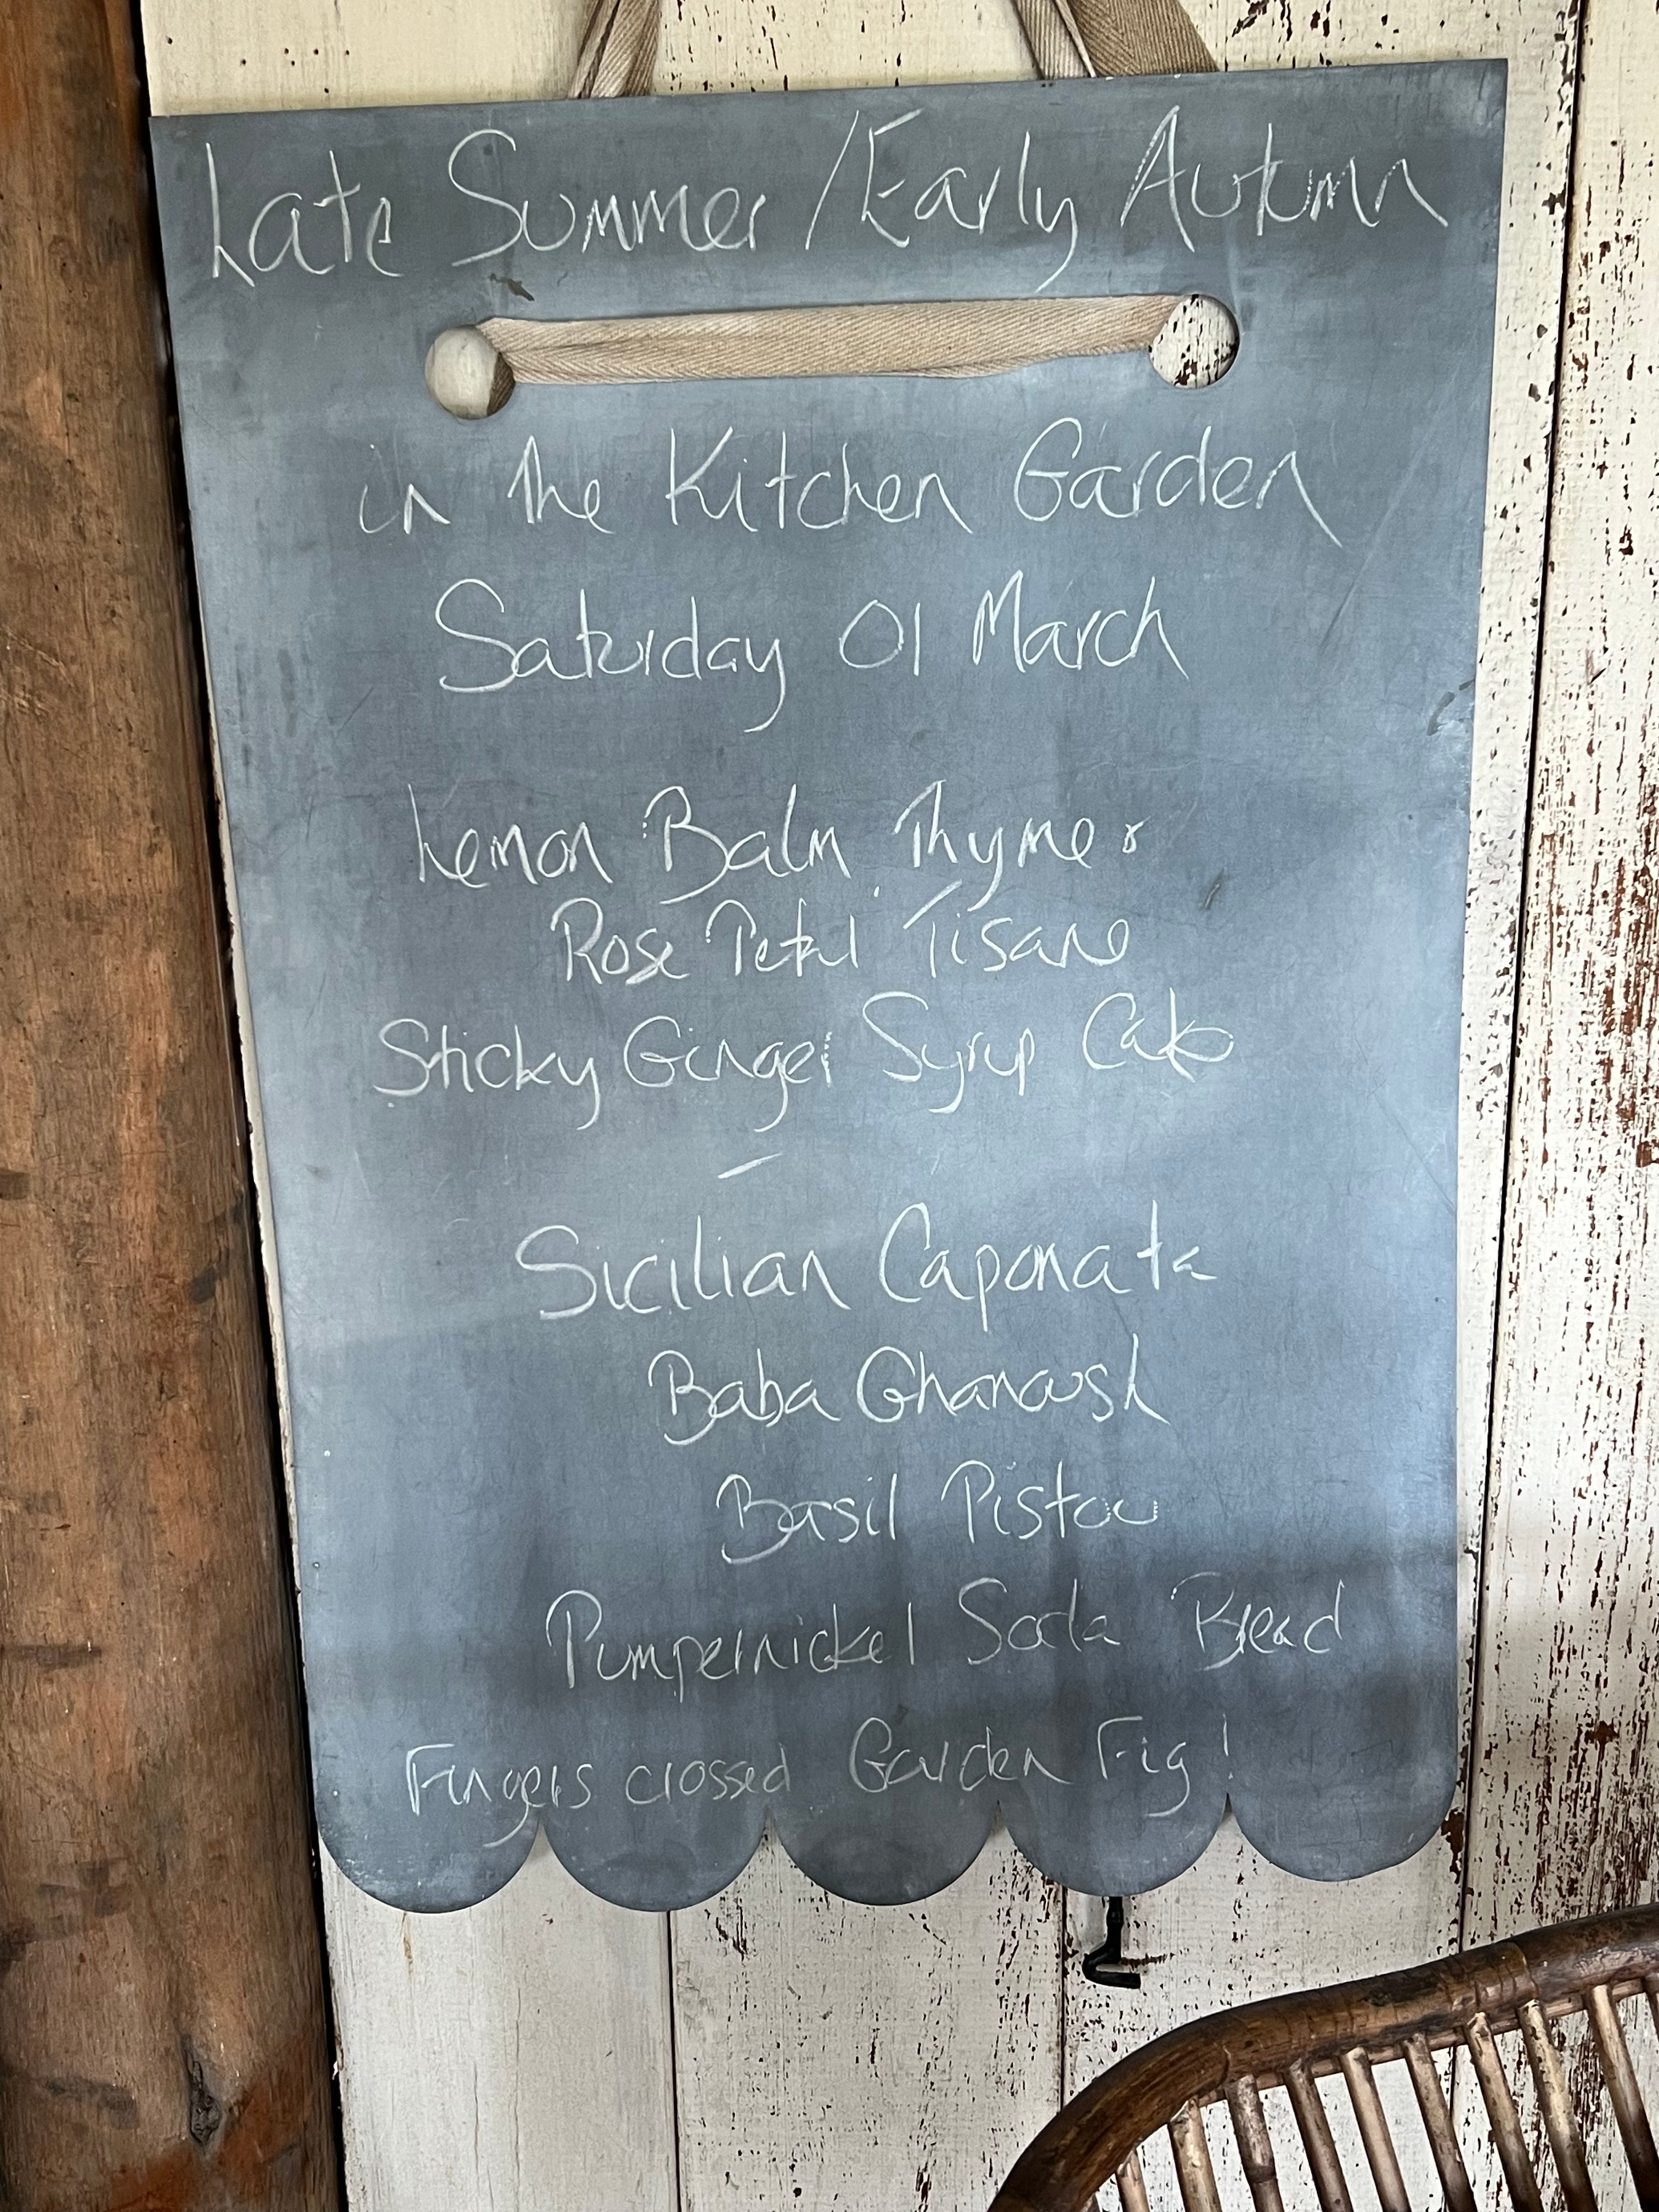 Late Summer / Early Autumn
in the Kitchen Garden
Saturday 01 March
Lemon Balm Thyme &
Rose Petal Tisane
Sticky Ginger Syrup Cake
–
Sicilian Caponata
Baba Ghanoush
Basil Pistou
Pumpernickel Soda Bread
Fingers crossed Garden Fig!